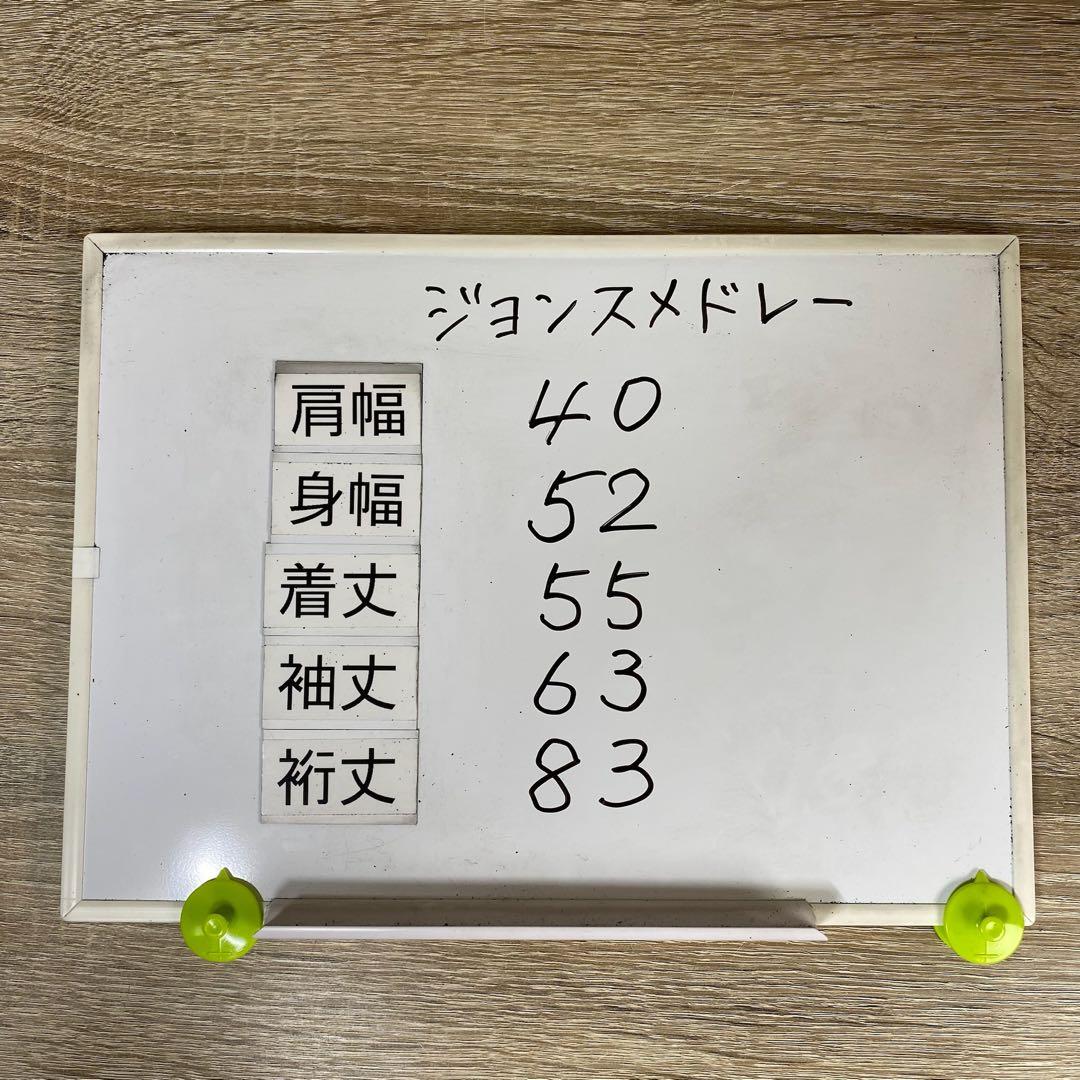 ジョンスメドレー
肩幅 40
身幅 52
着丈 55
袖丈 63
裄丈 83